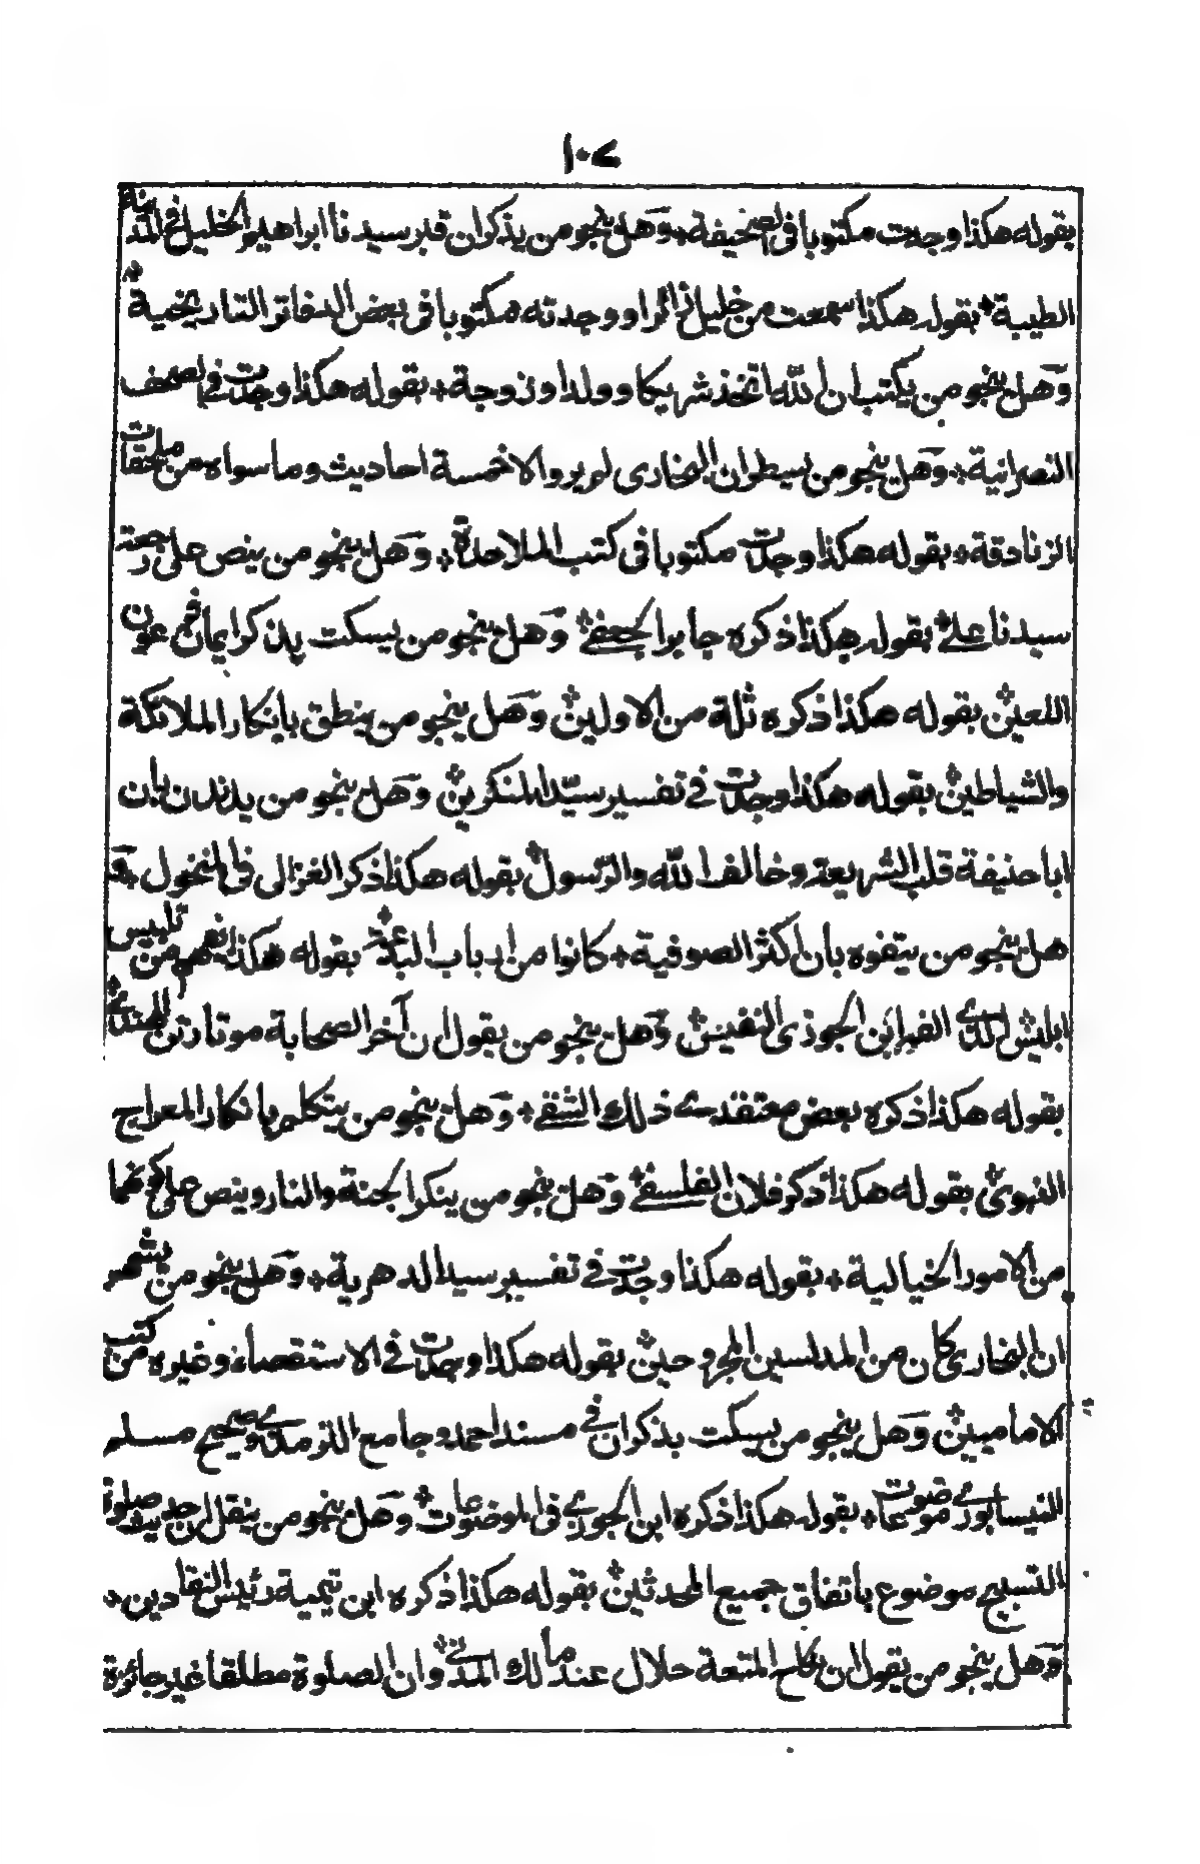 ١٠٧
بقوله هكذا وجدت مكتوبا في الصحيفة + وهل ينجو من يذكر ان قبر سيدنا ابراهيم الخليل في المدينة
الطيبة + بقوله هكذا سمعت من خليل زائرا ووجدته مكتوبا في بعض الدفاتر التاريخية +
وهل ينجو من يكتب ان الله اتخذ شريكا وولدا وزوجة + بقوله هكذا وجدت في الصحف
النصرانية + وهل ينجو من يسطر ان البخاري لم يرو الا خمسة احاديث وما سواه من ملحقات
الزنادقة + بقوله هكذا وجدت مكتوبا في كتب الملاحدة + وهل ينجو من ينص على رجعة
سيدنا علي + بقوله هكذا ذكره جابر الجعفي + وهل ينجو من يسكت بذكر ايمان فرعون
اللعين + بقوله هكذا ذكره ثلة من الاولين + وهل ينجو من ينطق بانكار الملائكة
والشياطين + بقوله هكذا وجدت في تفسير سيد المنكرين + وهل ينجو من يدندن بان
ابا حنيفة قلب الشريعة وخالف الله والرسول + بقوله هكذا ذكر الغزالي في المنخول + و
هل ينجو من يتفوه بان اكثر الصوفية + كانوا من ارباب البدعة + بقوله هكذا يفهم من تلبيس
ابليس لابن الجوزي النفيس + وهل ينجو من يقول ان آخر الصحابة موتا رتن الهندي +
بقوله هكذا ذكره بعض معتقدي ذلك الشقي + وهل ينجو من يتكلم بانكار المعراج
النبوي + بقوله هكذا ذكر فلان الفلسفي + وهل ينجو من ينكر الجنة والنار وينص على كونهما
من الامور الخيالية + بقوله هكذا وجدت في تفسير سيد الدهرية + وهل ينجو من يشهر
ان البخاري كان من المدلسين المجروحين + بقوله هكذا وجدت في الاستقصاء وغيره من كتب
الاماميين + وهل ينجو من يسكت بذكر ان في مسند احمد وجامع الترمذي وصحيح مسلم
النيسابوري موضوعات + بقوله هكذا ذكره ابن الجوزي في الموضوعات + وهل ينجو من ينقل ان حديث صلوة
التسبيح موضوع باتفاق جميع المحدثين + بقوله هكذا ذكره ابن تيمية رئيس النقادين +
وهل ينجو من يقول ان نكاح المتعة حلال عند مالك المدني + وان الصلوة مطلقا غير جائزة